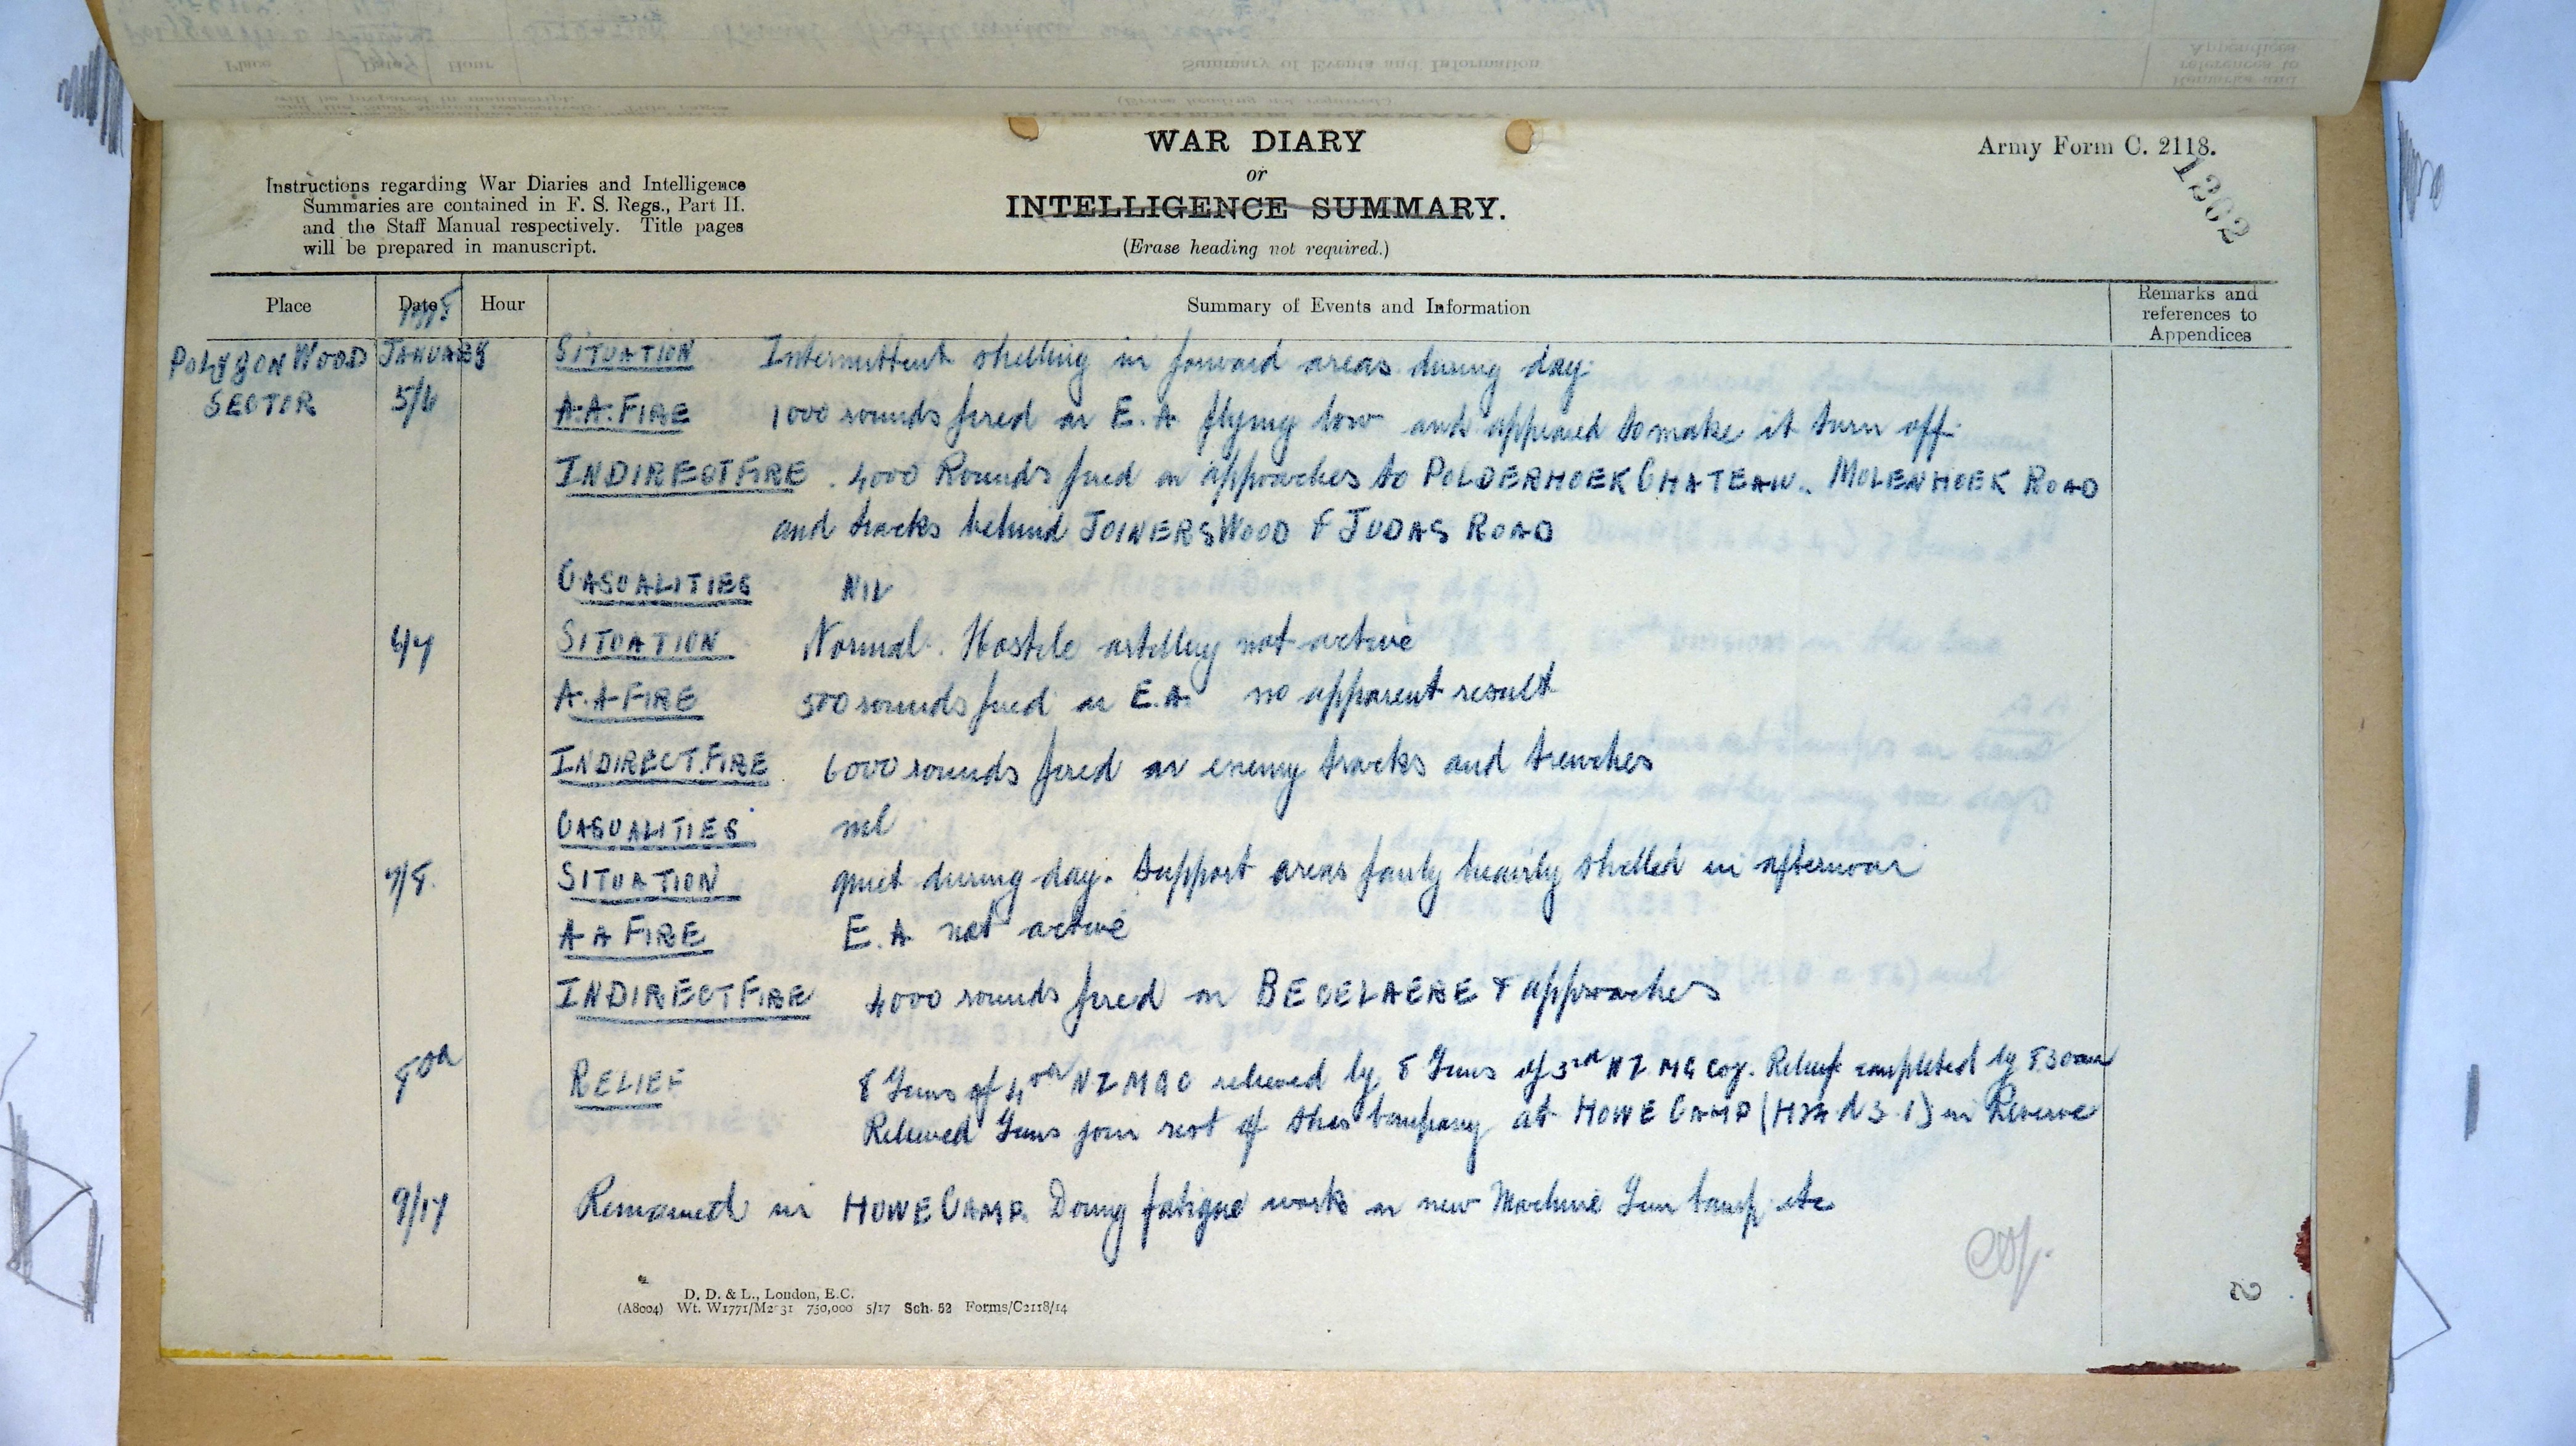 WAR DIARY
or
INTELLIGENCE SUMMARY.
(Erase heading not required.)
Army Form C. 2118.
1302
Instructions regarding War Diaries and Intelligence
Summaries are contained in F. S. Regs., Part II.
and the Staff Manual respectively. Title pages
will be prepared in manuscript.
Place Date Hour Summary of Events and Information Remarks and references to Appendices
POLYGON WOOD JANUARY SITUATION Intermittent shelling in forward areas during day.
SECTOR 5/6 A.A. FIRE 1000 rounds fired on E.A. flying low and appeared to make it turn off.
INDIRECT FIRE. 4000 Rounds fired on approaches to POLDERHOEK CHATEAU. MOLENHOEK ROAD
and tracks behind JOINERS WOOD & JUDAS ROAD
CASUALITIES NIL
6/7 SITUATION Normal. Hostile artillery not active
A.A FIRE 500 rounds fired on E.A. no apparent result
INDIRECT.FIRE 6000 rounds fired on enemy tracks and trenches
CASUALITIES nil
7/8. SITUATION quiet during day. Support areas fairly heavily shelled in afternoon
A A FIRE E.A. not active
INDIRECT FIRE 4000 rounds fired on BECELAERE & approaches
8th RELIEF 8 Guns of 4th NZMGC relieved by 8 Guns of 3rd NZ MG Coy. Relief completed by 8.30am
Relieved Guns join rest of this Company at HOWE CAMP (H d 3.1) in Reserve
9/17 Remained in HOWE CAMP. Doing fatigue work on new Machine Gun Camp etc
D. D. & L., London, E.C.
(A8004) Wt. W1771/M2 31 750,000 5/17 Sch. 52 Forms/C2118/14
2